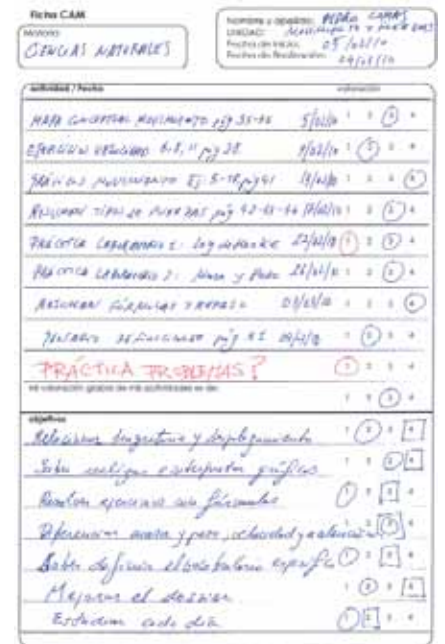 Ficha CAM
Materia:
CIENCIAS NATURALES
Nombre y apellido: PEDRO CAMAS
UNIDAD: MOVIMIENTO Y FUERZAS
Fecha de inicio: 05/02/10
Fecha de finalización:
actividad / Fecha valoración
MAPA CONCEPTUAL MOVIMIENTO pág 35-36 5/02/10 1 2 3 4
EJERCICIOS VELOCIDAD 6, 8, 11 pág 38 9/02/10 1 2 3 4
GRÁFICAS MOVIMIENTO Ej: 5-18, pág 41 1 2 3 4
RESUMEN TIPOS DE FUERZAS pág 42-43-44 1 2 3 4
PRÁCTICA LABORATORIO 1: Ley de Hooke 22/02/10 1 2 3 4
PRÁCTICA LABORATORIO 2: Masa y Peso 26/02/10 1 2 3 4
RESUMEN FÓRMULAS Y REPASO 1 2 3 4
DEFINICIONES pág 1 2 3 4
PRÁCTICA PROBLEMAS? 1 2 3 4
Mi valoración global de mis actividades es de: 1 2 3 4
objetivos
Relacionar trayectoria y desplazamiento 1 2 3 4
Saber realizar e interpretar gráficos 1 2 3 4
Resolver ejercicios con fórmulas 1 2 3 4
Diferenciar masa y peso, velocidad y aceleración 1 2 3 4
Saber definir el vocabulario específico 1 2 3 4
Mejorar el dossier 1 2 3 4
Estudiar cada día 1 2 3 4